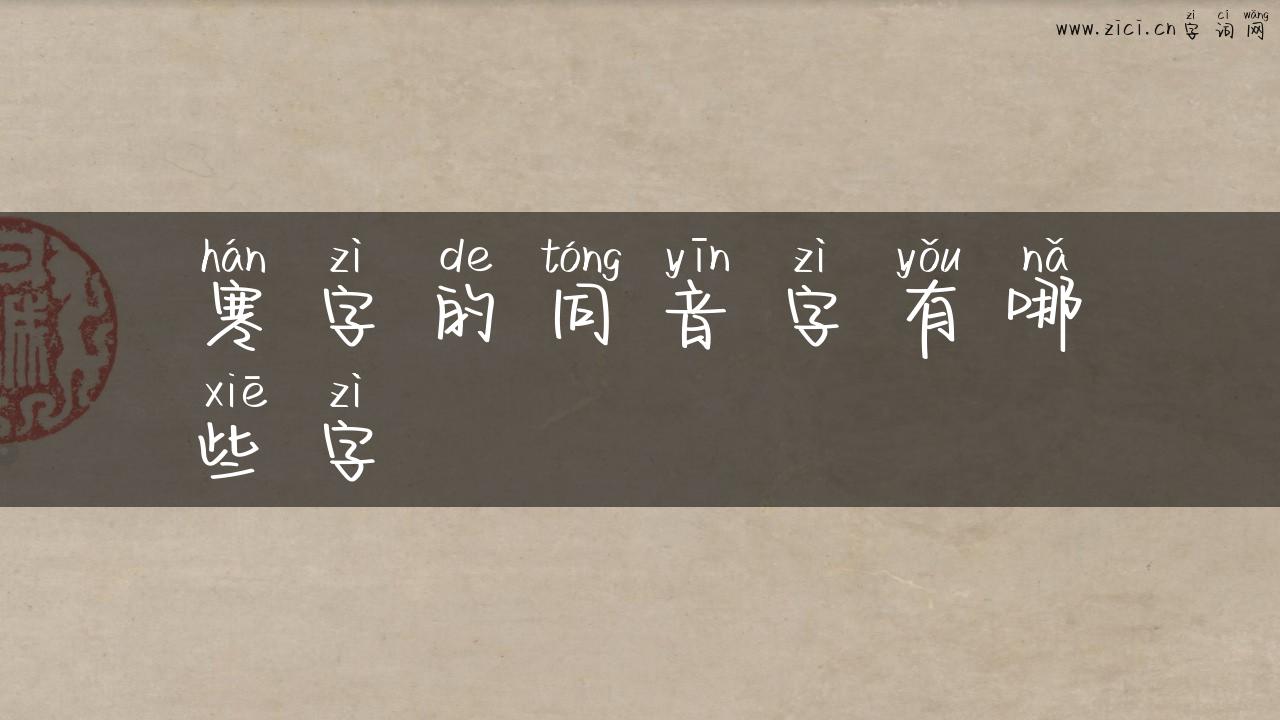 zì cí wǎng
www.zici.cn 字词网
hán zì de tóng yīn zì yǒu nǎ
寒字的同音字有哪
xiē zì
些字